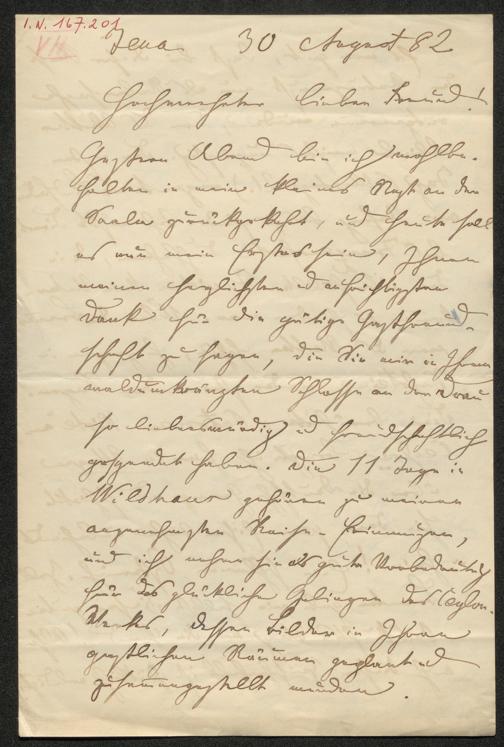 I.N. 167.201
VII
Jena 30 August 82
Hochverehrter lieber Freund!
Gestern Abend bin ich wohlbe-
halten in mein kleines Nest an der
Saale zurückgekehrt, und heute soll
es nun mein Erstes sein, Ihnen
meinen herzlichsten und aufrichtigsten
Dank für die gütige Gastfreund-
schaft zu sagen, die Sie mir in Ihrem
waldumkränzten Schlosse an der Drau
so liebenswürdig und freundschaftlich
gespendet haben. Die 11 Tage in
Wildhaus gehören zu meinen
angenehmsten Reise-Erinnerungen,
und ich nehme sie als gute Vorbedeutung
für das glückliche Gelingen des Ceylon-
Werks, dessen Bilder in Ihren
gastlichen Räumen geplant und
zusammengestellt wurden.